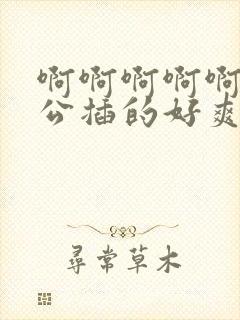 啊啊啊啊啊
公插的好爽
尋常草木